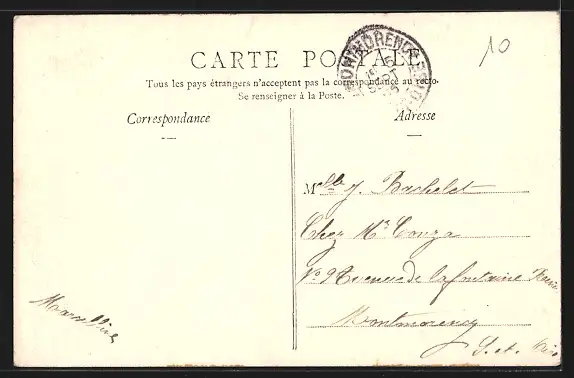 10
CARTE POSTALE
MONTMORENCY
Tous les pays étrangers n'acceptent pas la correspondance au recto.
Se renseigner à la Poste.
Correspondance
Adresse
Melle J. Bachelet
Chez Mr Couza
No 9 Avenue de la fontaine
Montmorency
S. et Oise
Marcelline